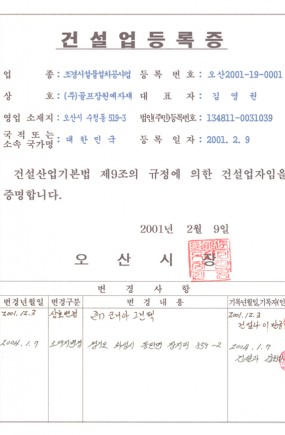 건설업등록증
업 종 : 조경시설물설치공사업 등 록 번 호 : 오산2001-19-0001
상 호 : (주)골프장원예자재 대 표 자 : 김 영 권
영업 소재지 : 오산시 수청동 519-3 법인(주민)등록번호 : 134811-0031039
국 적 또 는
소속 국가명 : 대 한 민 국 등 록 일 자 : 2001. 2. 9
건설산업기본법 제9조의 규정에 의한 건설업자임을
증명합니다.
2001년 2월 9일
오 산 시 장
변 경 사 항
변경년월일 변경구분 변 경 내 용 기록년월일,기록자(인
2001.12.3 상호변경 2001.12.3
2004.1.7 소재지변경 경기도 화성시 359-2 2004.1.7